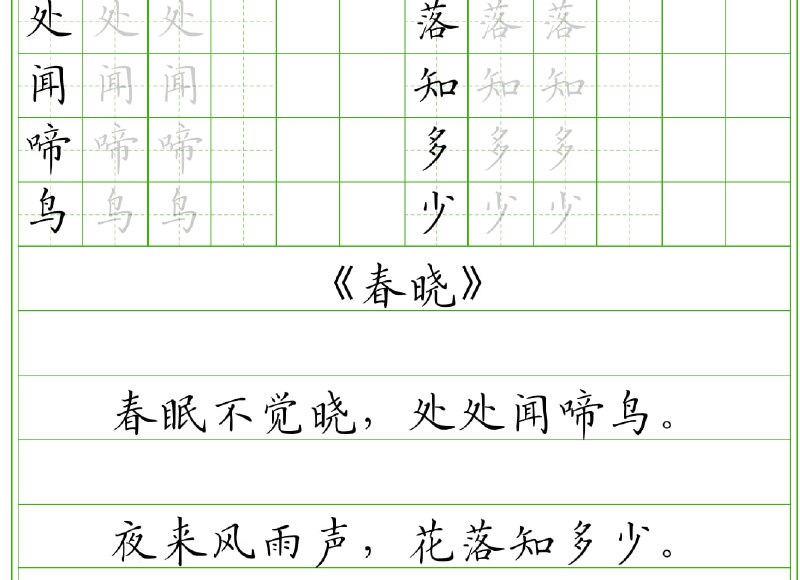 处处处 落落落
闻闻闻 知知知
啼啼啼 多多多
鸟鸟鸟 少少少
《春晓》
春眠不觉晓，处处闻啼鸟。
夜来风雨声，花落知多少。